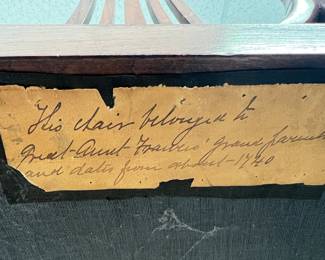 This chair belonged to
Great-Aunt Frances' grand parents
and dates from about-1740